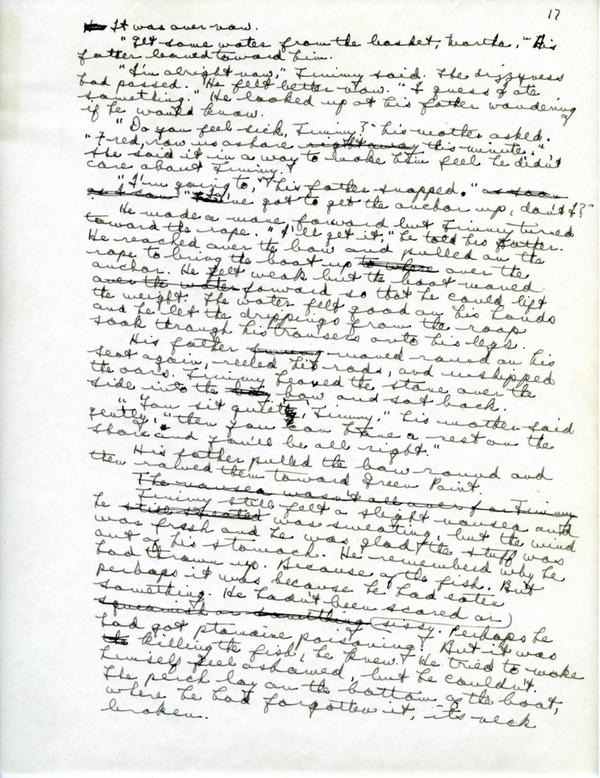 17
It was over now.
"Get some water from the basket, Martha." His
father leaned toward him.
"I'm alright now," Timmy said. The dizzyness
had passed. He felt better now. "I guess I ate
something." He looked up at his father wondering
if he would know.
"Do you feel sick, Timmy?" his mother asked.
"Fred, row us ashore right away this minute."
She said it in a way to make him feel he didn't
care about Timmy.
"I'm going to," his father snapped. "as soon
as I can" I've got to get the anchor up, don't I?"
He made a move forward but Timmy turned
toward the rope. "I'll get it," he told his father.
He reached over the bow and pulled on the
rope to bring the boat up to where over the
anchor. He felt weak but the boat moved
over the water forward so that he could lift
the weight. The water felt good on his hands
and he let the drippings from the roap
soak through his trousers onto his legs.
His father moved round on his
seat again, reeled his rods, and unshipped
the oars. Timmy heaved the stone over the
side into the bow and sat back.
"You sit quiet, Timmy," his mother said
gently, "then you can have a rest on the
shore and you'll be all right."
His father pulled the bow round and
then rowed them toward Green Point.
The nausea wasn't all over for Timmy
Timmy still felt a slight nausea and
he still sweated was sweating, but the wind
was fresh and he was glad the stuff was
out of his stomach. He remembered why he
had thrown up. Because of the fish. But
perhaps it was because he had eaten
something. He hadn't been scared or
squeamish or something sissy. Perhaps he
had got ptomaine poisoning. But it was
killing the fish, he knew. He tried to make
himself feel ashamed, but he couldn't.
The perch lay on the bottom of the boat,
where he had forgotten it, its neck
broken.